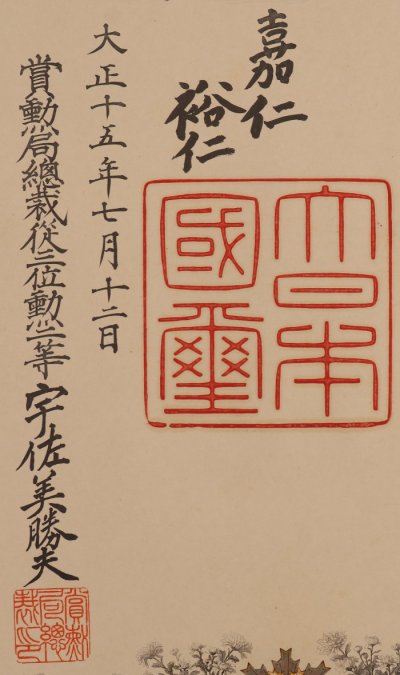 嘉仁
裕仁
大日本
國璽
大正十五年七月十二日
賞勲局總裁從三位勲二等宇佐美勝夫
賞勲
局總
裁印